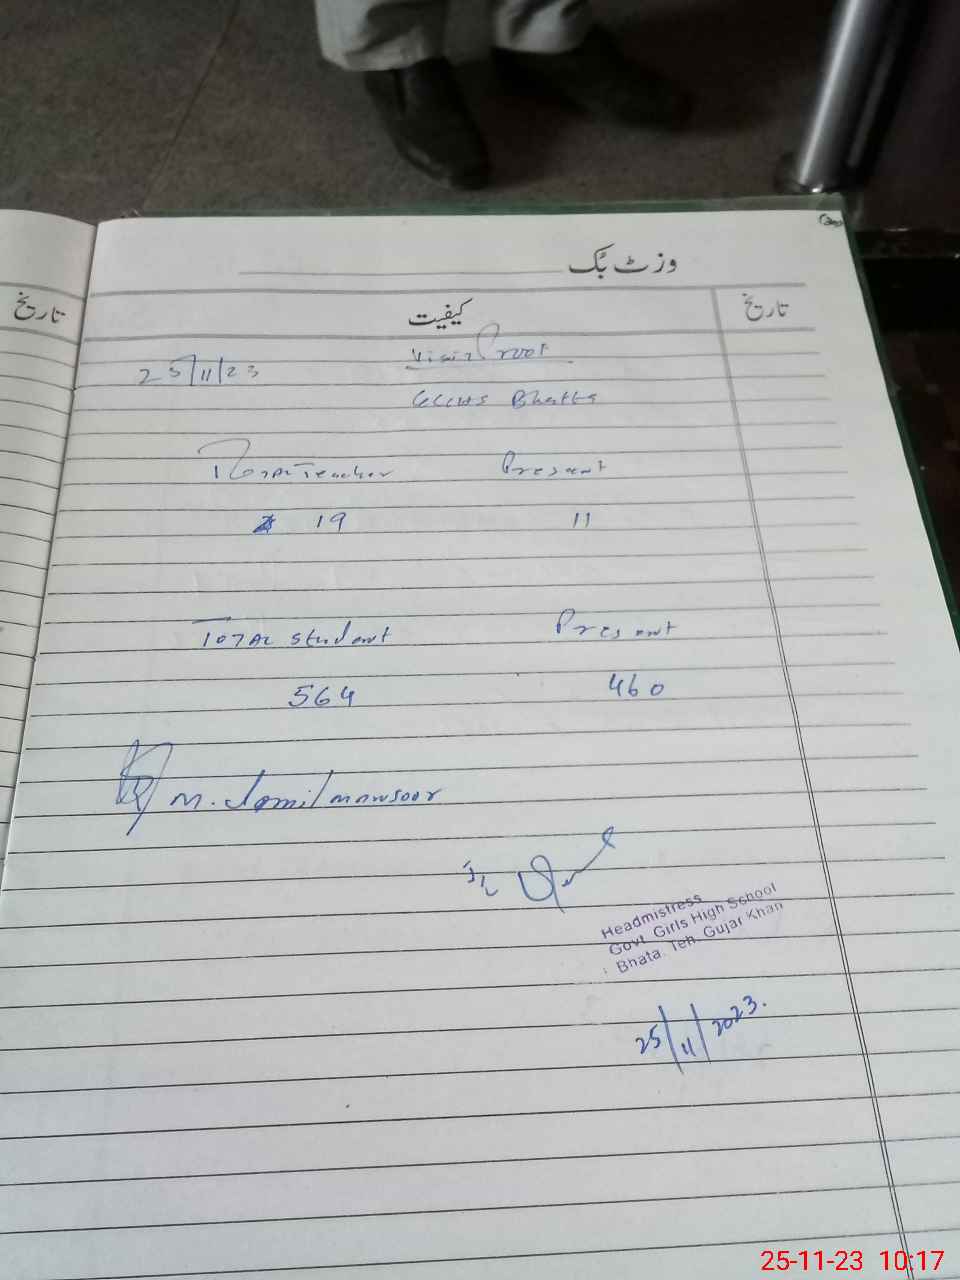 وزٹ بُک
تاریخ
کیفیت
تاریخ
25/11/23 Visit Proof
GGHS Bhatta
Total Teacher Present
19 11
Total Student Present
564 460
M. Jamil Mansoor
Headmistress
Govt. Girls High School
Bhata. Teh. Gujar Khan
25/11/2023.
25-11-23 10:17